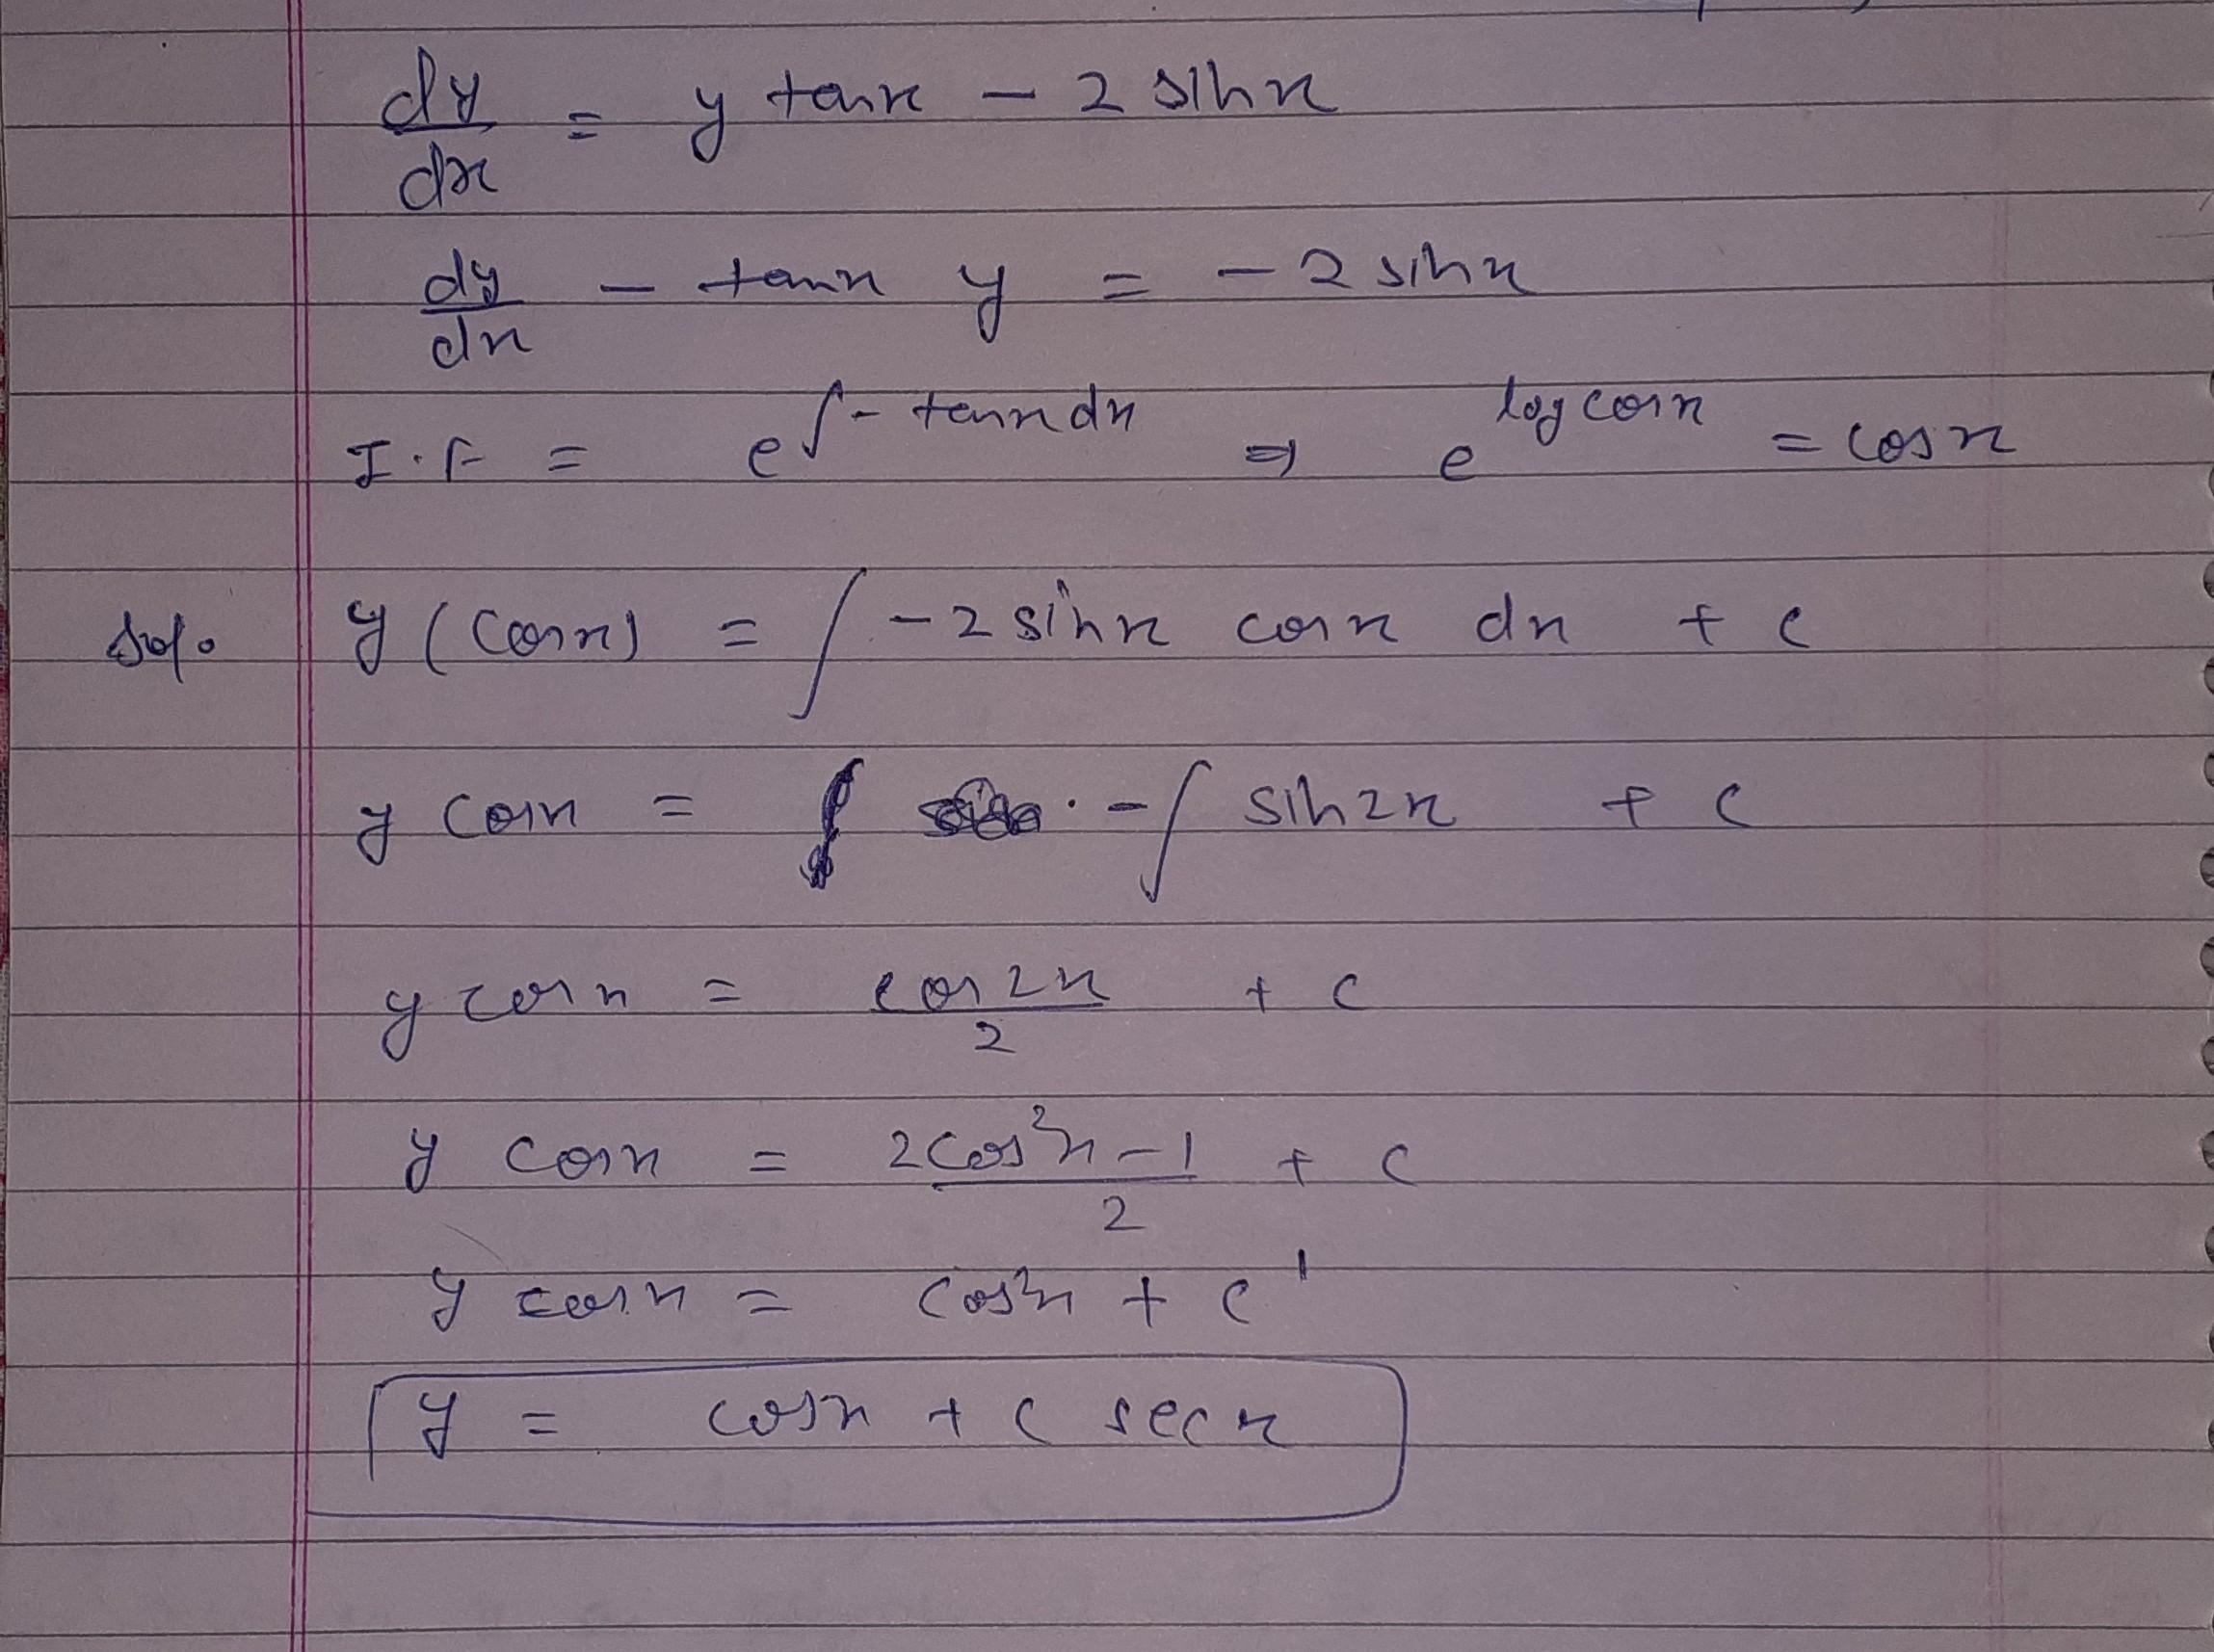 dy/dx = y tanx - 2 sinx
dy/dx - tanx y = - 2 sinx
I.F = e^∫-tanxdx ⇒ e^logcosx = cosx
Sol. y (cosx) = ∫ -2 sinx cosx dx + c
y cosx = - ∫ sin2x + c
y cosx = cos2x/2 + c
y cosx = 2cos²x-1/2 + c
y cosx = cos²x + c'
y = cosx + c secx